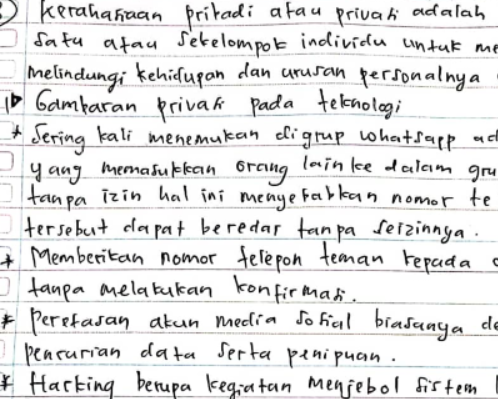 kerahasiaan pribadi atau privasi adalah
satu atau sekelompok individu untuk me
melindungi kehidupan dan urusan personalnya
Gambaran privasi pada teknologi
* Sering kali menemukan digrup whatsapp ad
yang memasukkan orang lain ke dalam gru
tanpa izin hal ini menyebabkan nomor te
tersebut dapat beredar tanpa seizinnya.
* Memberikan nomor telepon teman kepada
tanpa melakukan konfirmasi.
* Peretasan akun media sosial biasanya de
pencurian data serta penipuan.
* Hacking berupa kegiatan menjebol sistem